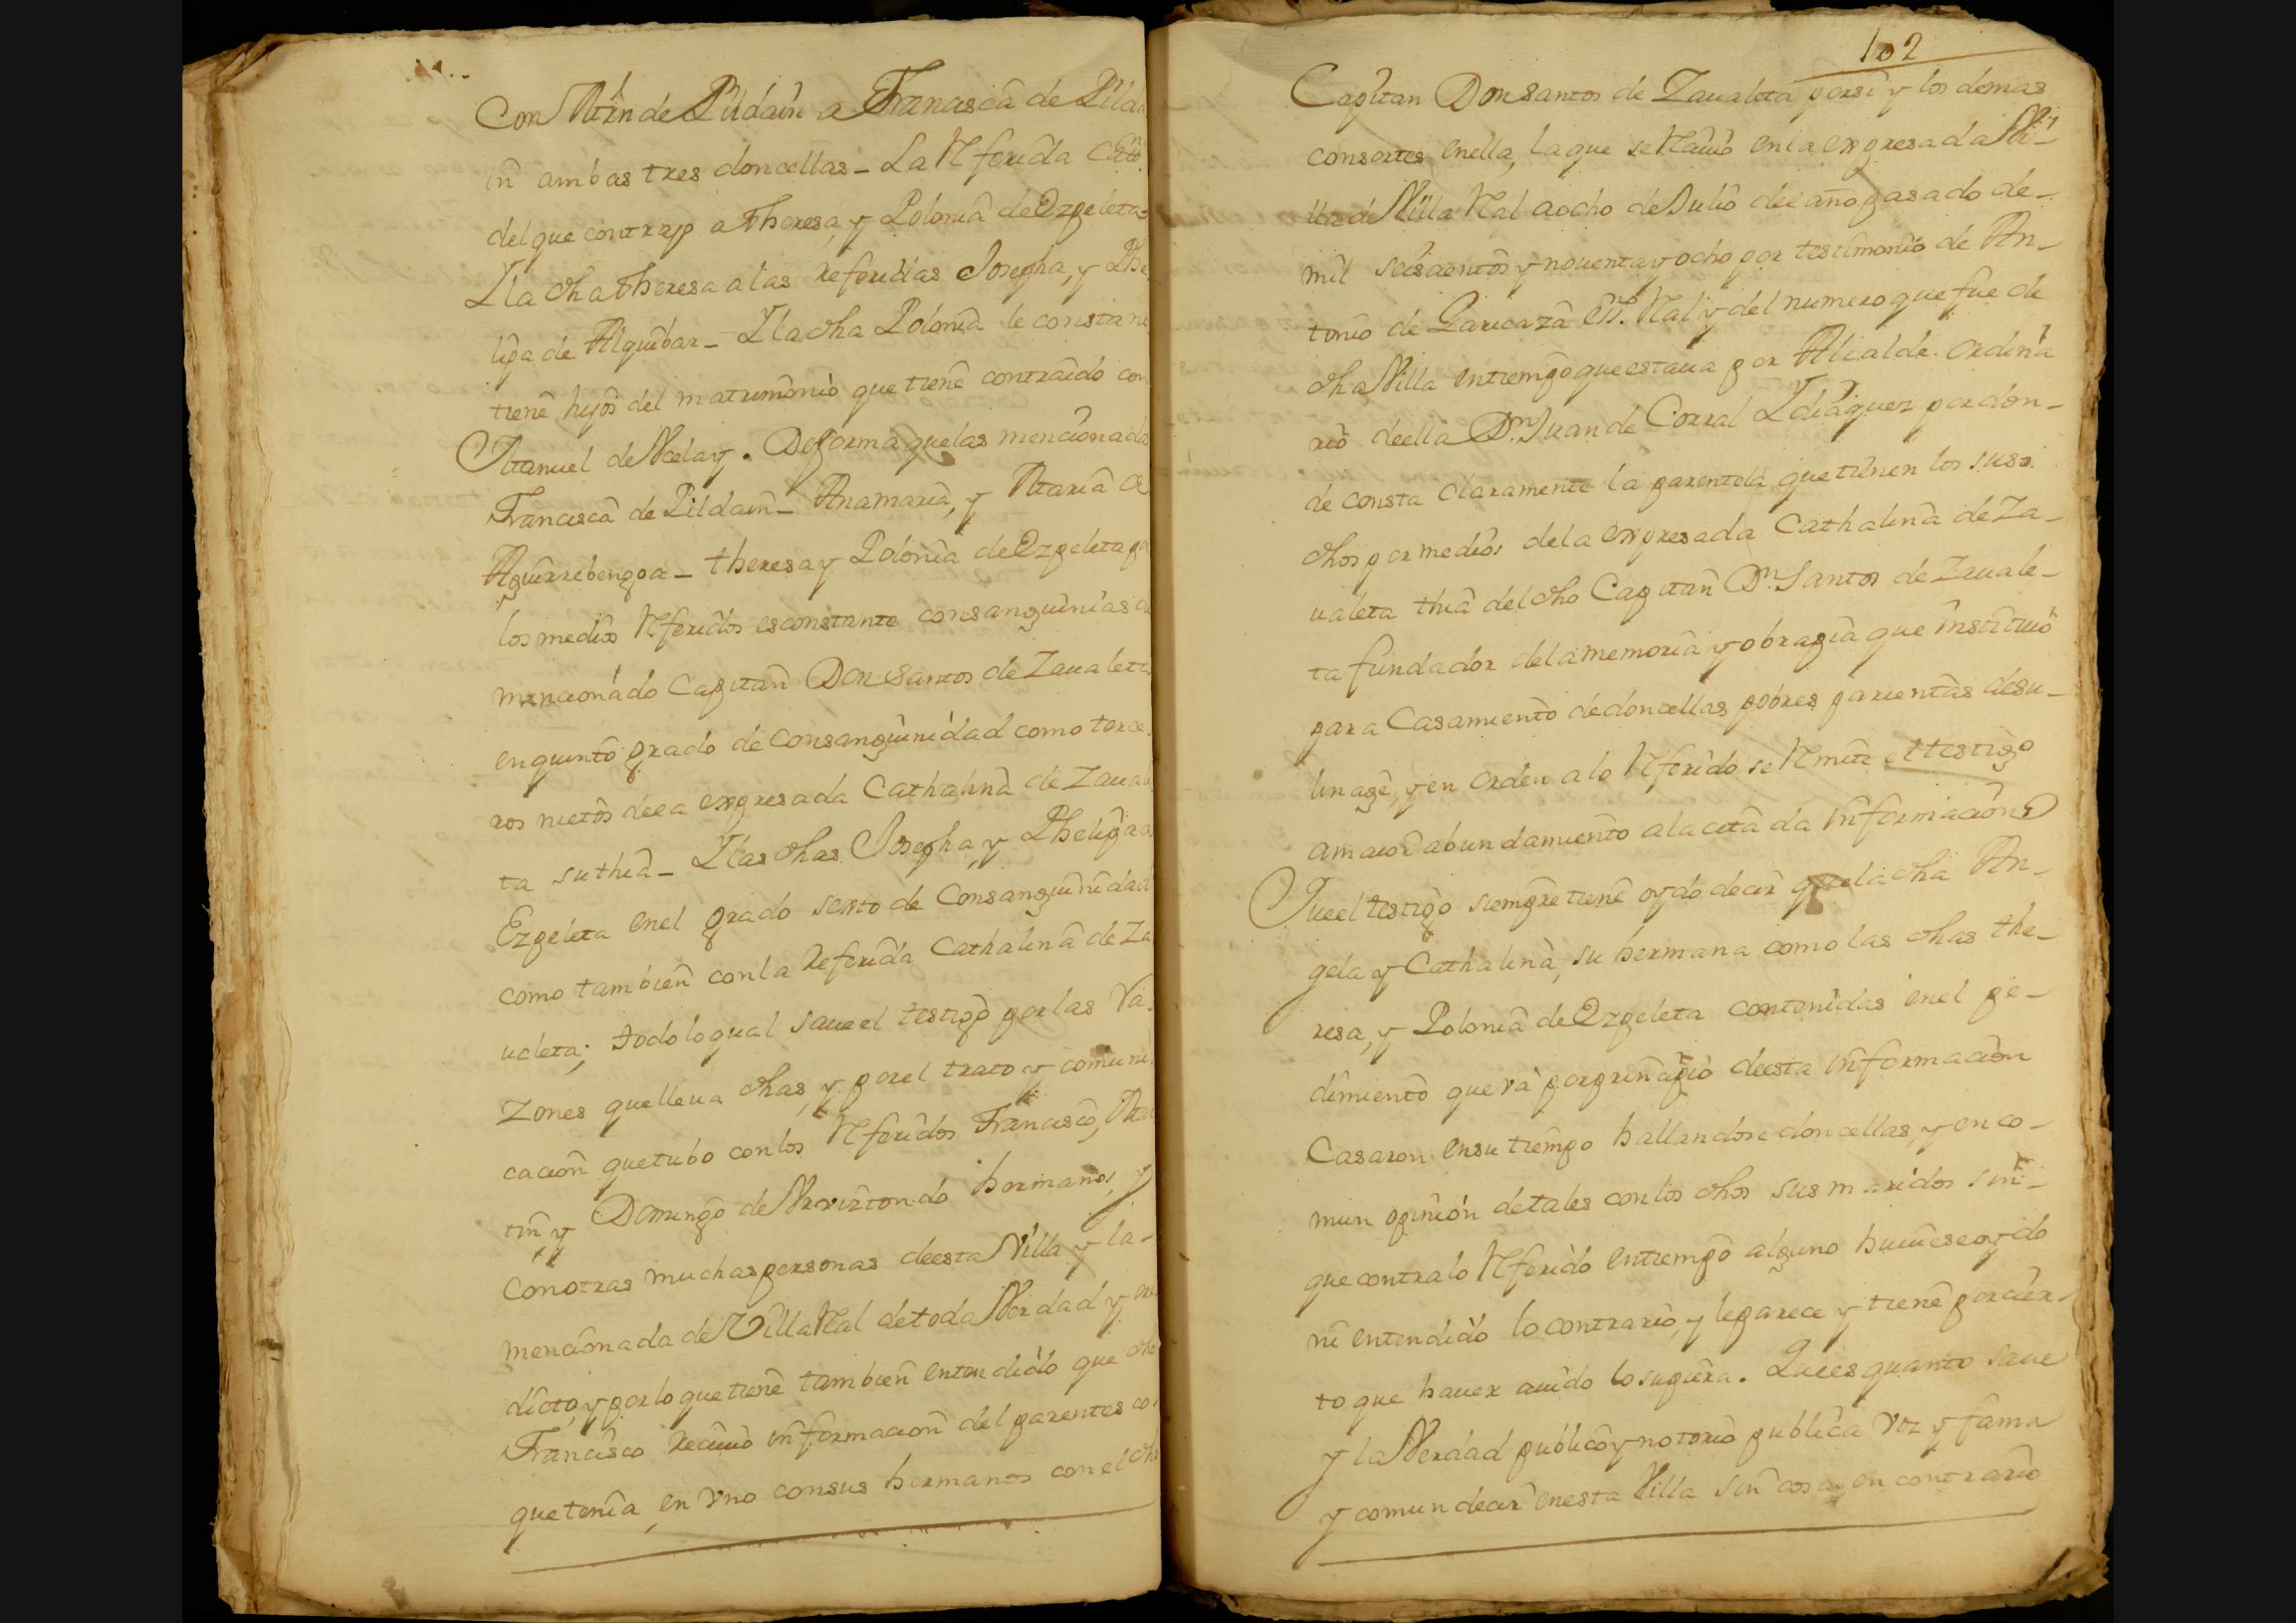 Con Mrn de Pildain a Francisca de Pilda
in ambas tres doncellas _ La Referida Cath
del que contrajo a Theresa, y Polonia de Ezpeleta _
Y la dha Theresa a las Referidas Josepha, y Phe
lipa de Alquibar _ Y la dha Polonia le consta no
tiene hijos del matrimonio que tiene contraido con
Manuel de Veelay. De forma que las mencionada
Francisca de Pildain _ Ana maria, y Maria de
Aguirrebengoa _ theresa y Polonia de Ezpeleta po
los medios Referidos es constante consanguinias de
mencionado Capitan Don Santos de Zaualeta
en quinto grado de consanguinidad como terce
ros nietos de la expresada Cathalina de Zaual
ta su thia _ Y las dhas Josepha y Phelipa de
Ezpeleta en el grado sexto de Consanguinidad
como tambien con la Referida Cathalina de Za
ualeta; todo lo qual saue el testigo por las Ra
zones que lleua dhas, y por el trato y comuni
cacion que tubo con los Referidos Francisco, Mar
tin y Domingo de Arriztondo hermanos, y
con otras muchas personas de esta Villa y la _
mencionada de Villa Real de toda Verdad y cre
dicto, y por lo que tiene tambien entendido que dho
Francisco Reciuio informacion del parentesco
que tenia, en vno con sus hermanos con el dho
102
Capitan Don Santos de Zaualeta por si y los demas
consortes en ella, la que se Reciuio en la expresada Vi _
lla de Villa Real a ocho de Julio del año pasado de _
mil seiscientos y nouenta y ocho por testimonio de An _
tonio de Garicaza Esno. Real y del numero que fue de
dha Villa en tiempo que estaua por Alcalde ordina
rio de ella Dn. Juan de Corral Ydiaquez por don _
de consta claramente la parentela que tienen los suso
dhos por medios de la expresada Cathalina de Za _
ualeta thia del dho Capitan Dn. Santos de Zauale _
ta fundador de la memoria y obra pia que instituió
para Casamiento de doncellas pobres parientas de su _
linage, y en orden a lo Referido se Remite el testigo
a maior abundamiento a la citada informacion
Que el testigo siempre tiene oydo decir que la dha An _
gela y Cathalina, su hermana como las dhas the _
resa, y Polonia de Ezpeleta contenidas en el pe _
dimiento que va por principio de esta informacion
Casaron en su tiempo hallandose doncellas, y en co _
mun opinion de tales con los dhos sus maridos sin _
que contra lo Referido en tiempo alguno huuiese oydo
ni entendido lo contrario, y le parece y tiene por cier _
to que hauer auido lo supiera. Que es quanto saue
y la Verdad publico y notorio publica voz y fama
y comun decir en esta Villa sin cosa en contrario